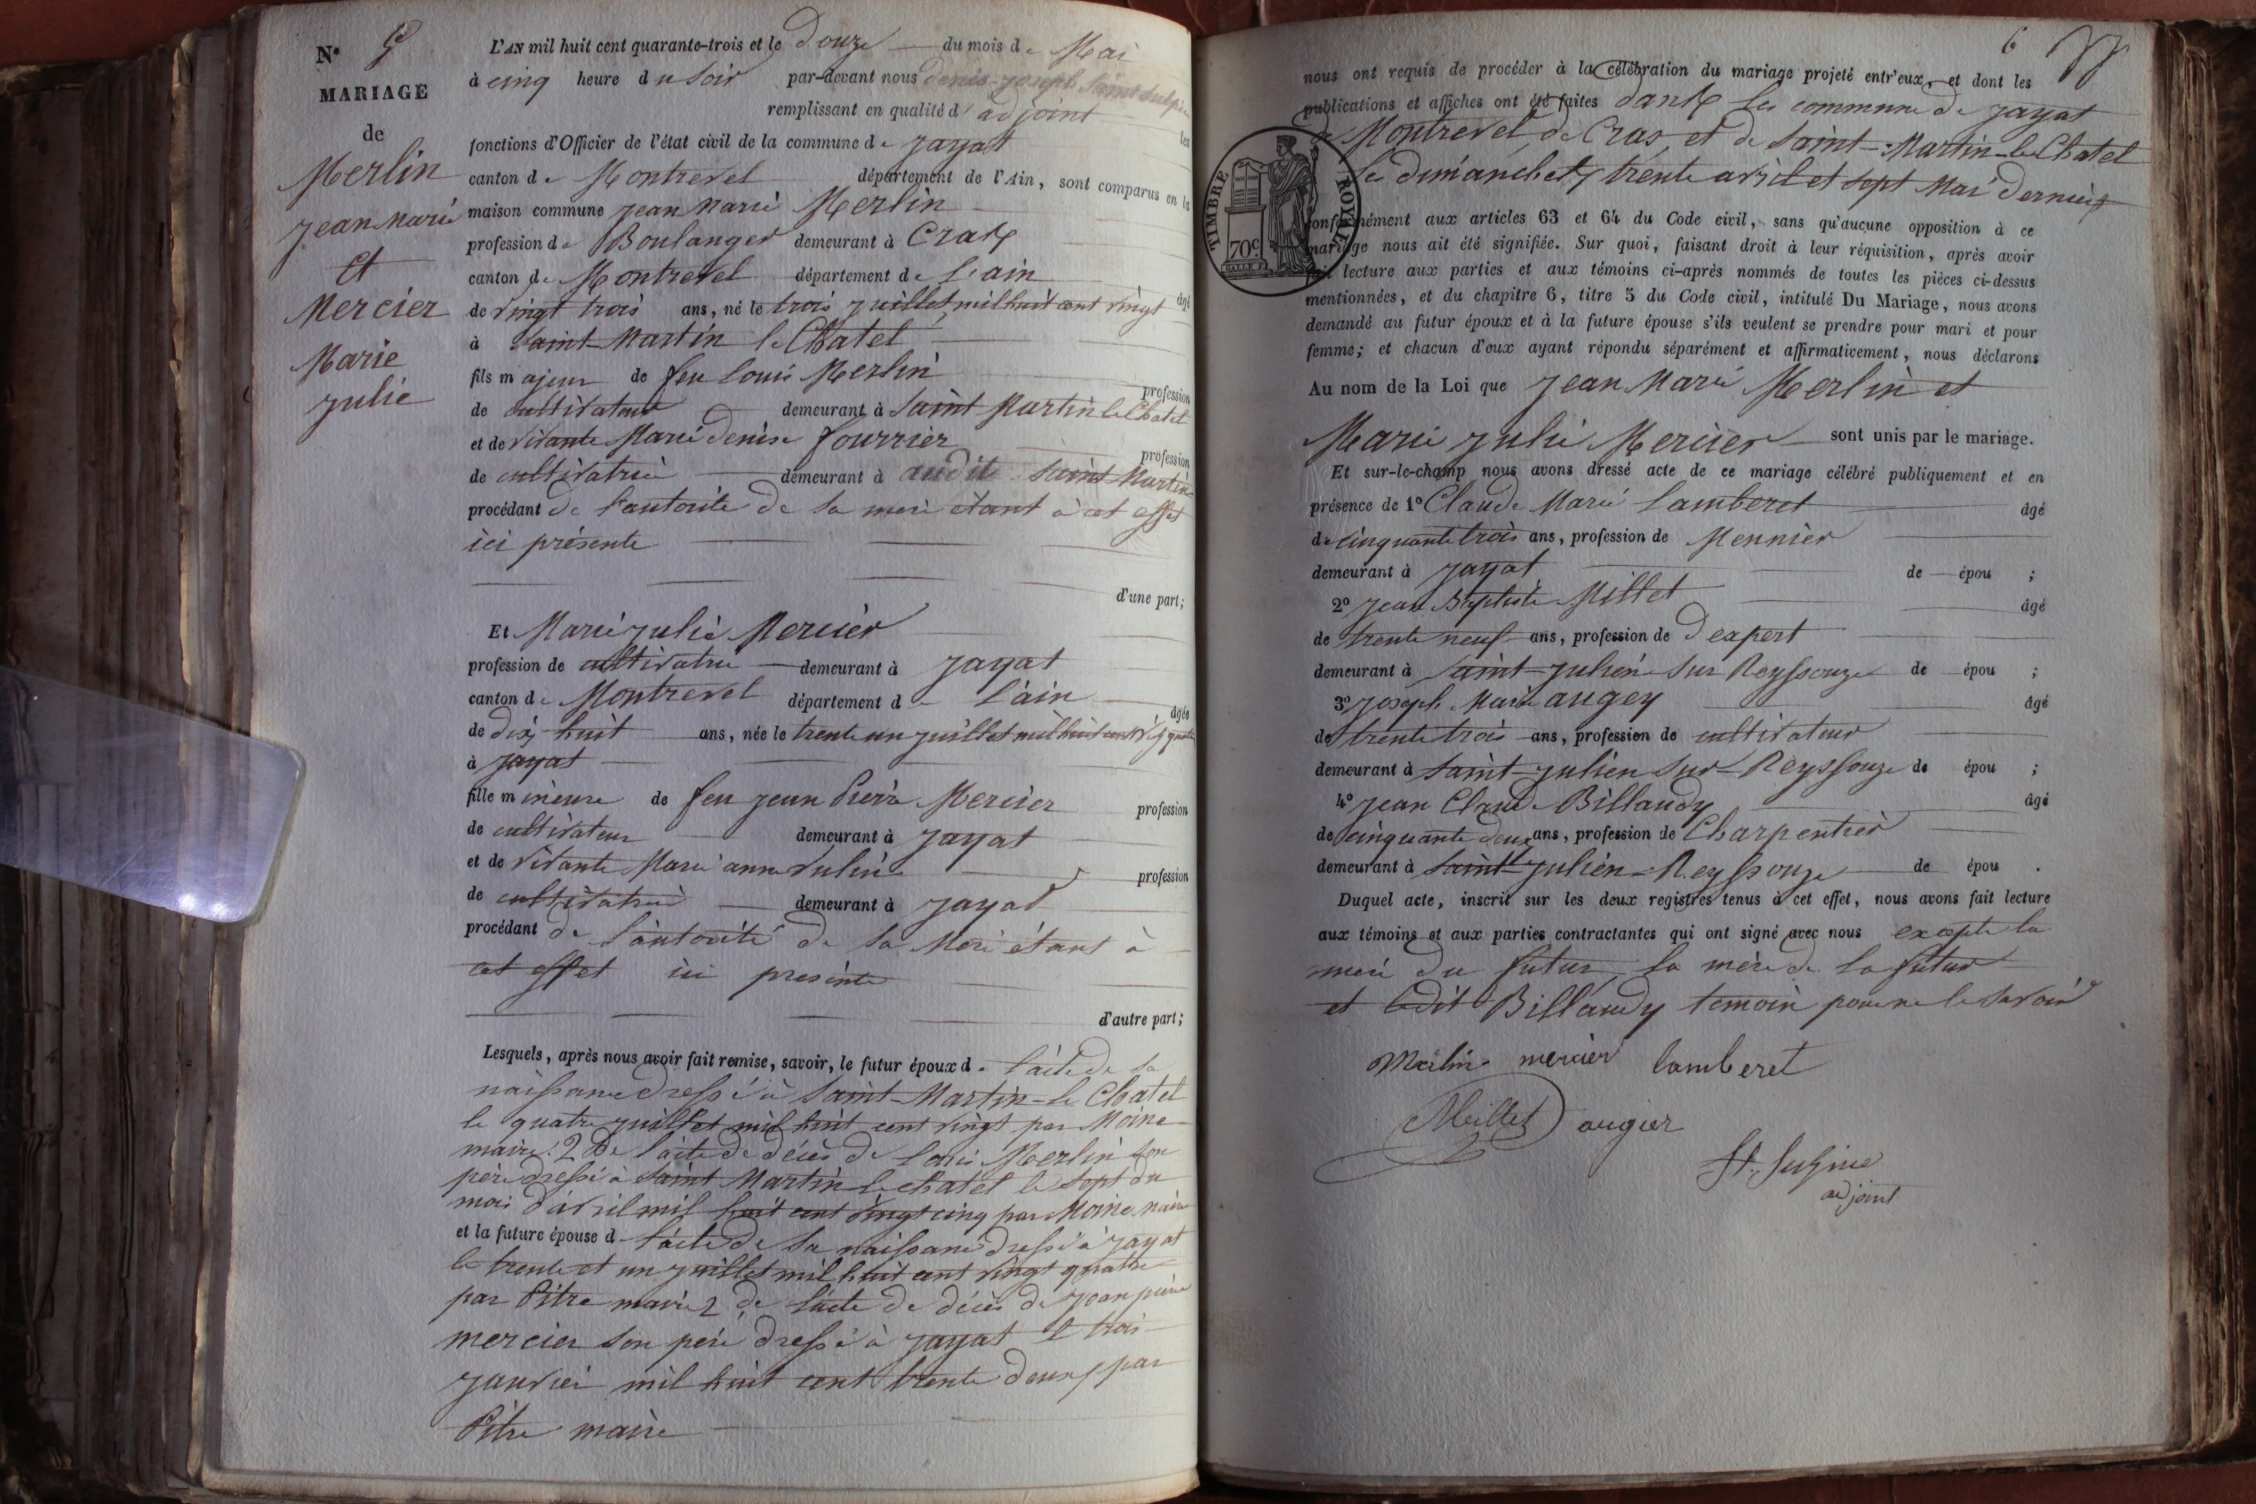 N°
MARIAGE
de
Merlin
jean Marie
et
Mercier
Marie
julie
L'AN mil huit cent quarante-trois et le Douze du mois de Mai
à cinq heure du soir par-devant nous denis joseph Saint Sulpice
remplissant en qualité d'adjoint les
fonctions d'Officier de l'état civil de la commune de jayat
canton de Montrevel département de l'Ain, sont comparus en la
maison commune jean marie Merlin
profession de Boulanger demeurant à Cras
canton de Montrevel département de l'ain âgé
de vingt trois ans, né le trois juillet mil huit cent vingt
à saint Martin le Chatel
fils majeur de feu Louis Merlin profession
de cultivateur demeurant à Saint Martin le Chatel
et de vivante Marie denise fourrier profession
de cultivatrice demeurant à audit saint Martin
procédant de l'autorité de sa mere étant à cet effet
ici présente
d'une part;
Et Marie julie Mercier
profession de cultivatrice demeurant à jayat
canton de Montrevel département de l'ain âgée
de dix huit ans, née le trente un juillet mil huit cent vingt quatre
à jayat
fille mineure de feu jean Pierre Mercier profession
de cultivateur demeurant à jayat
et de vivante Marie anne vulin profession
de cultivatrice demeurant à jayat
procédant de l'autorité de sa Mere étant à
cet effet ici presente
d'autre part;
Lesquels, après nous avoir fait remise, savoir, le futur époux de l'acte de sa
naissance dressé à Saint-Martin-le Chatel
le quatre juillet mil huit cent vingt par Moine
maire. 2 De l'acte de décès de Louis Merlin son
père dressé à Saint Martin le chatel le sept du
mois d'avril mil huit cent vingt cinq par Moine maire
et la future épouse de l'acte de sa naissance dressé à jayat
le trente et un juillet mil huit cent vingt quatre
par Pitre maire 2 de l'acte de décès de jean pierre
mercier son père dressé à jayat le trois
janvier mil huit cent trente deux par
Pitre maire
6
nous ont requis de procéder à la célébration du mariage projeté entr'eux, et dont les
publications et affiches ont été faites dans les commune de jayat
Montrevel, de Cras, et de Saint-Martin-le Chatel
les dimanches trente avril et sept Mai derniers
conformément aux articles 63 et 64 du Code civil, sans qu'aucune opposition à ce
mariage nous ait été signifiée. Sur quoi, faisant droit à leur réquisition, après avoir
fait lecture aux parties et aux témoins ci-après nommés de toutes les pièces ci-dessus
mentionnées, et du chapitre 6, titre 5 du Code civil, intitulé Du Mariage, nous avons
demandé au futur époux et à la future épouse s'ils veulent se prendre pour mari et pour
femme; et chacun d'eux ayant répondu séparément et affirmativement, nous déclarons
TIMBRE ROYAL
70c
Au nom de la Loi que jean Marie Merlin et
Marie julie Mercier sont unis par le mariage.
Et sur-le-champ nous avons dressé acte de ce mariage célébré publiquement et en
présence de 1° Claude Marie Lamberet âgé
de cinquante trois ans, profession de Mennier
demeurant à jayat de épou ;
2° jean Baptiste Millet âgé
de trente neuf ans, profession de D'expert
demeurant à saint-julien sur Reyssouze de épou ;
3° joseph Marie augey âgé
de trente trois ans, profession de cultivateur
demeurant à Saint-julien Sur-Reyssouze de épou ;
4° jean Claude Billaudy âgé
de cinquante deux ans, profession de Charpentier
demeurant à Saint julien-Reyssouze de épou .
Duquel acte, inscrit sur les deux registres tenus à cet effet, nous avons fait lecture
aux témoins et aux parties contractantes qui ont signé avec nous excepte la
mere du futur, la mère de la futur
et ledit Billaudy temoin pour ne le savoir
Merlin mercier lamberet
Millet augier
St. Sulpice
adjoint